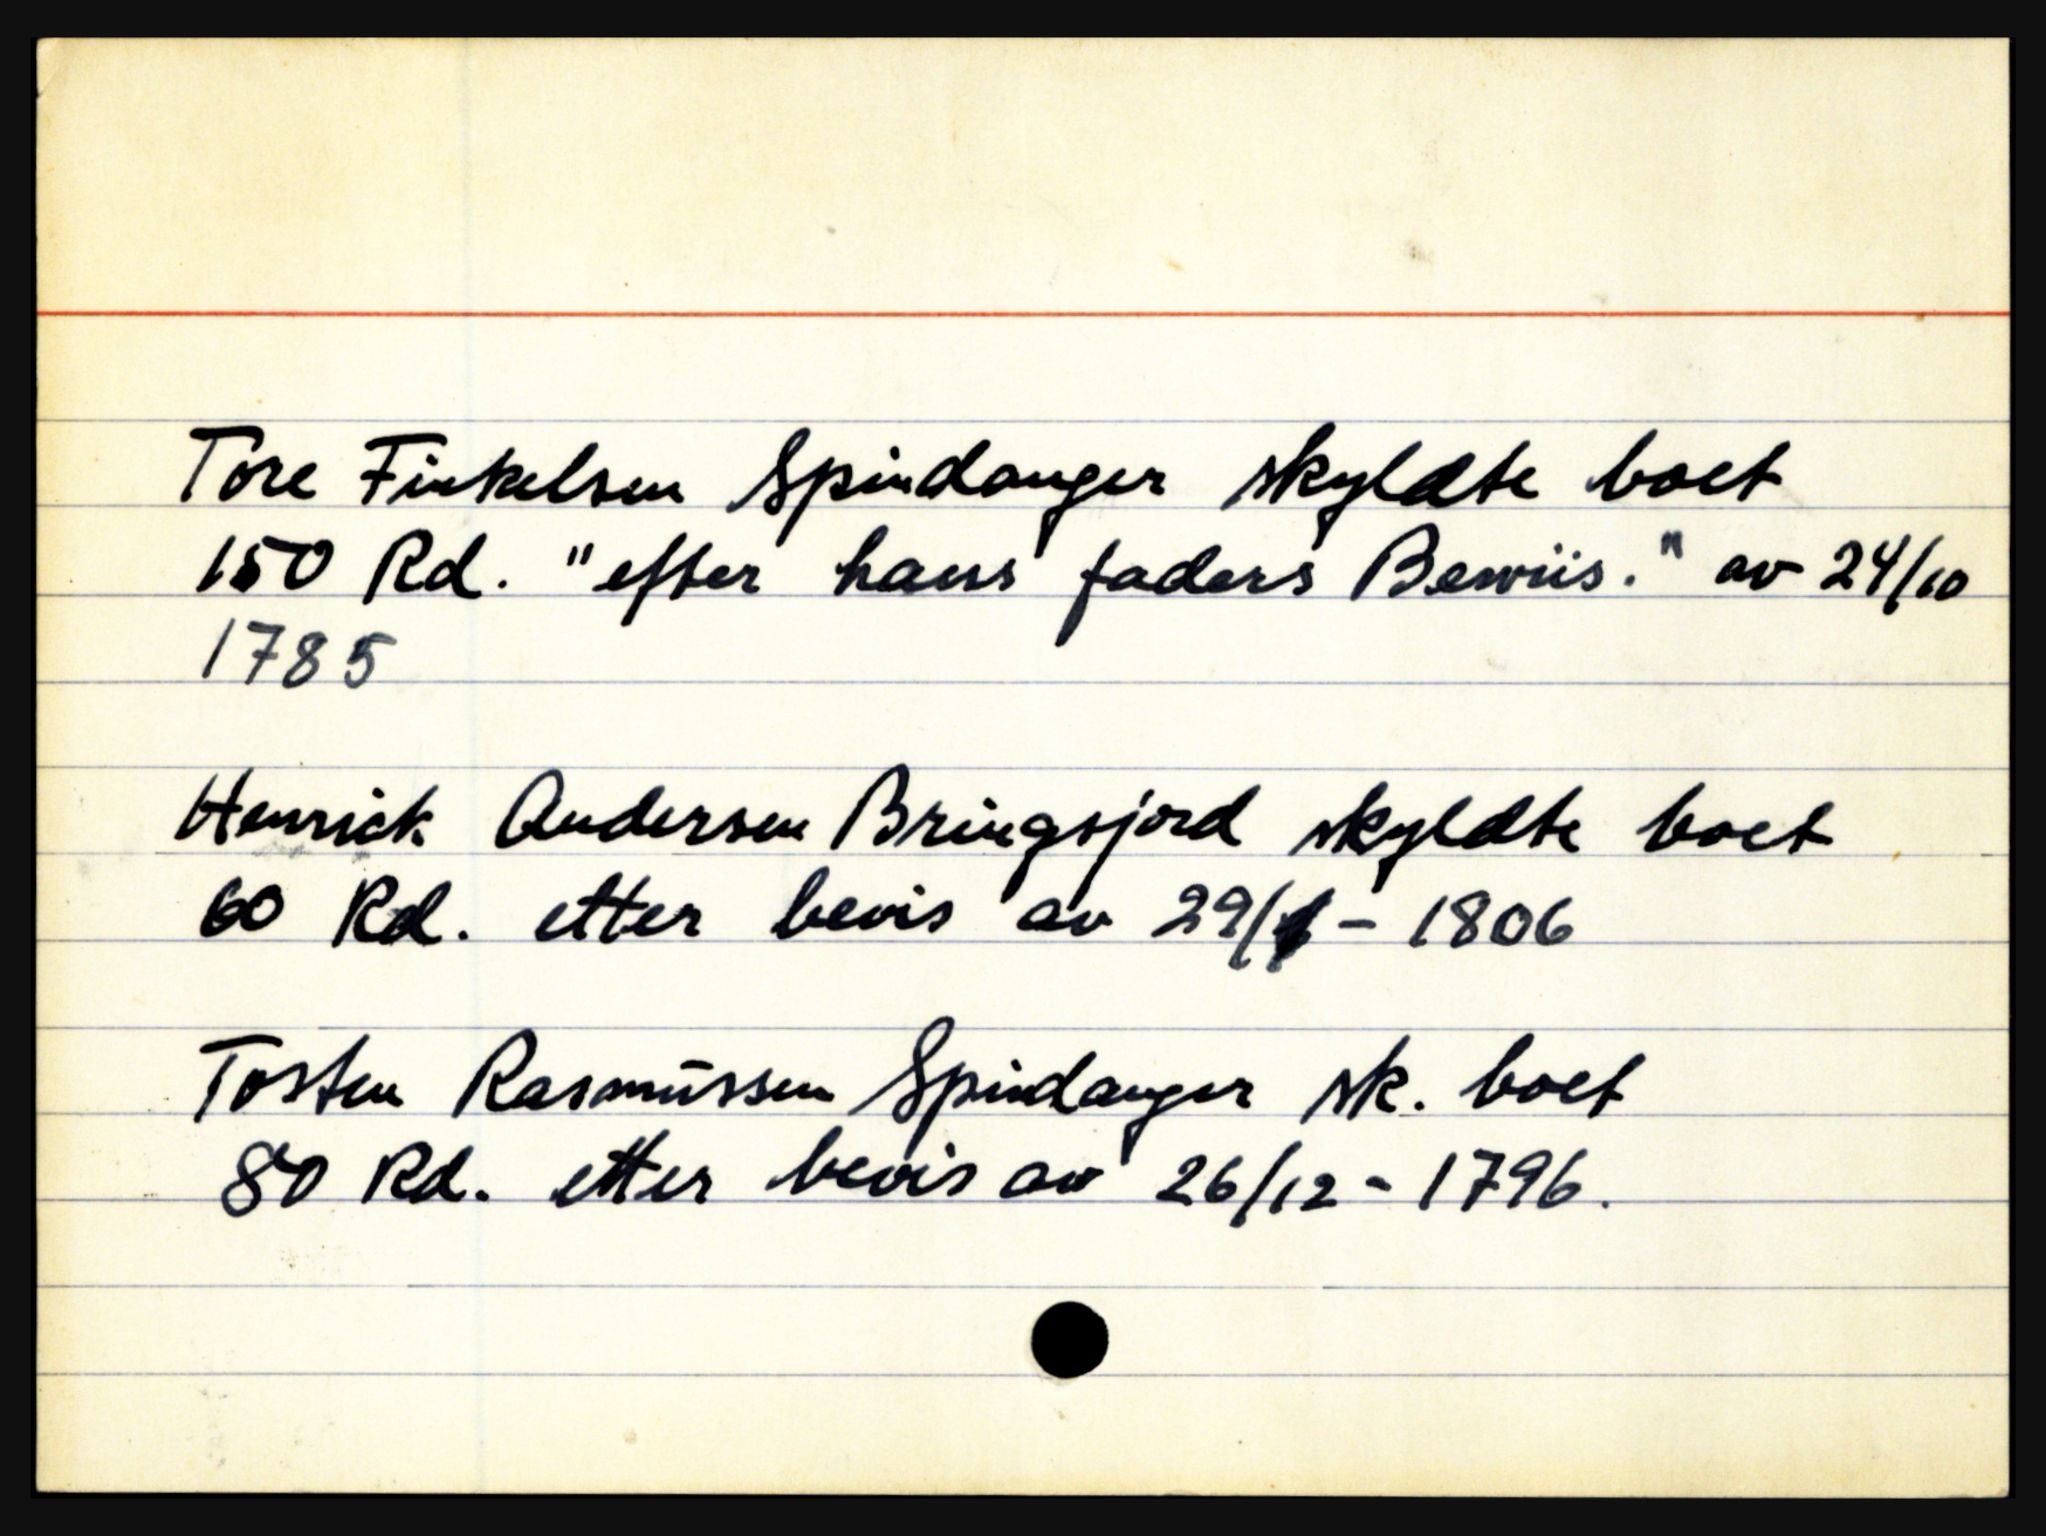 Tore Finkelsen Spindanger skyldte boet
150 Rd. "efter hans faders Bewiis." av 24/10
1785
Henrick Andersen Bringsjord skyldte boet
60 Rd. etter bevis av 29/ - 1806
Tosten Rasmussen Spindanger sk. boet
80 Rd. etter bevis av 26/12 - 1796.